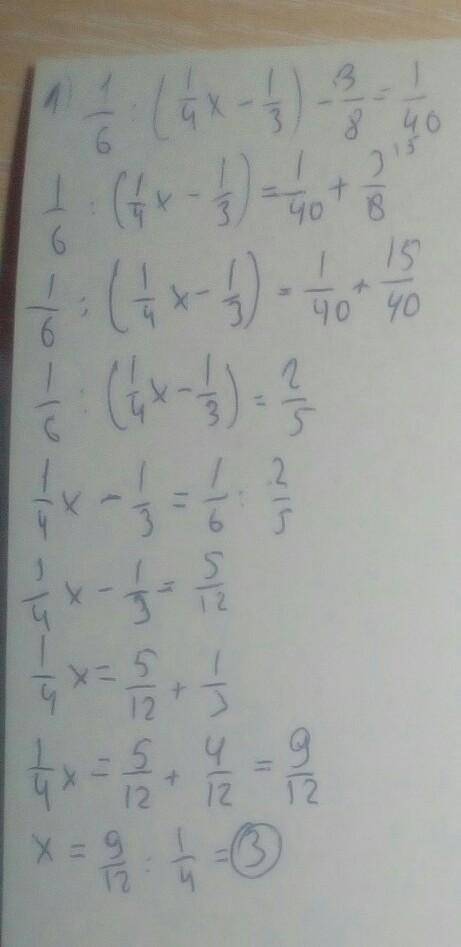 1) 1/6 : (1/4 x - 1/3) - 3/8 = 1/40
1/6 : (1/4 x - 1/3) = 1/40 + 3/8 15
1/6 : (1/4 x - 1/3) = 1/40 + 15/40
1/6 : (1/4 x - 1/3) = 2/5
1/4 x - 1/3 = 1/6 : 2/5
1/4 x - 1/3 = 5/12
1/4 x = 5/12 + 1/3
1/4 x = 5/12 + 4/12 = 9/12
x = 9/12 : 1/4 = 3